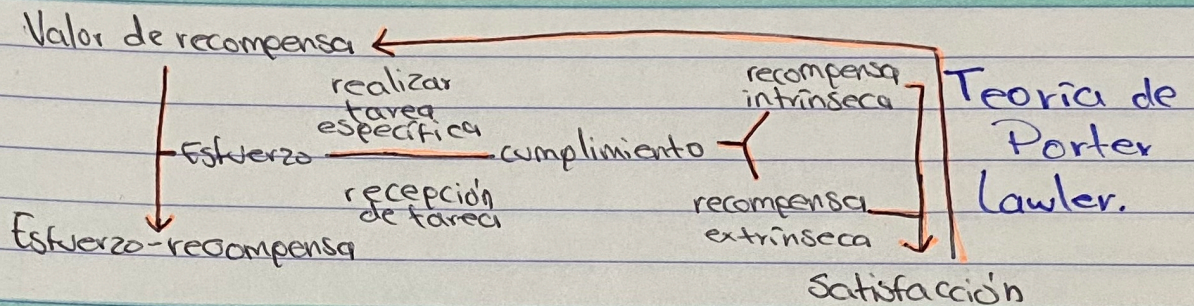 Valor de recompensa
realizar
tarea
específica
Esfuerzo
cumplimiento
recepción
de tarea
Esfuerzo-recompensa
recompensa
intrínseca
recompensa
extrínseca
Satisfacción
Teoría de
Porter
Lawler.